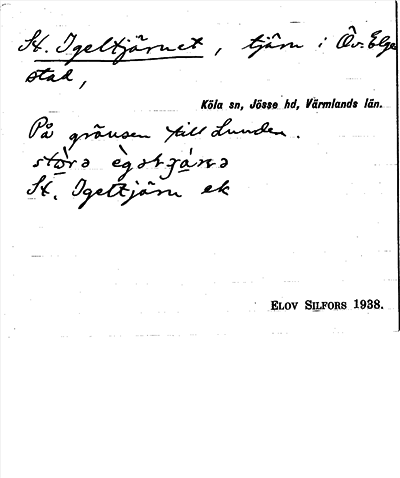 St. Igeltjärnet, tjärn i Öv. Elge
stad,
Köla sn, Jösse hd, Värmlands län.
På gränsen till Lunden.
St. Igeltjärn ek
ELOV SILFORS 1938.